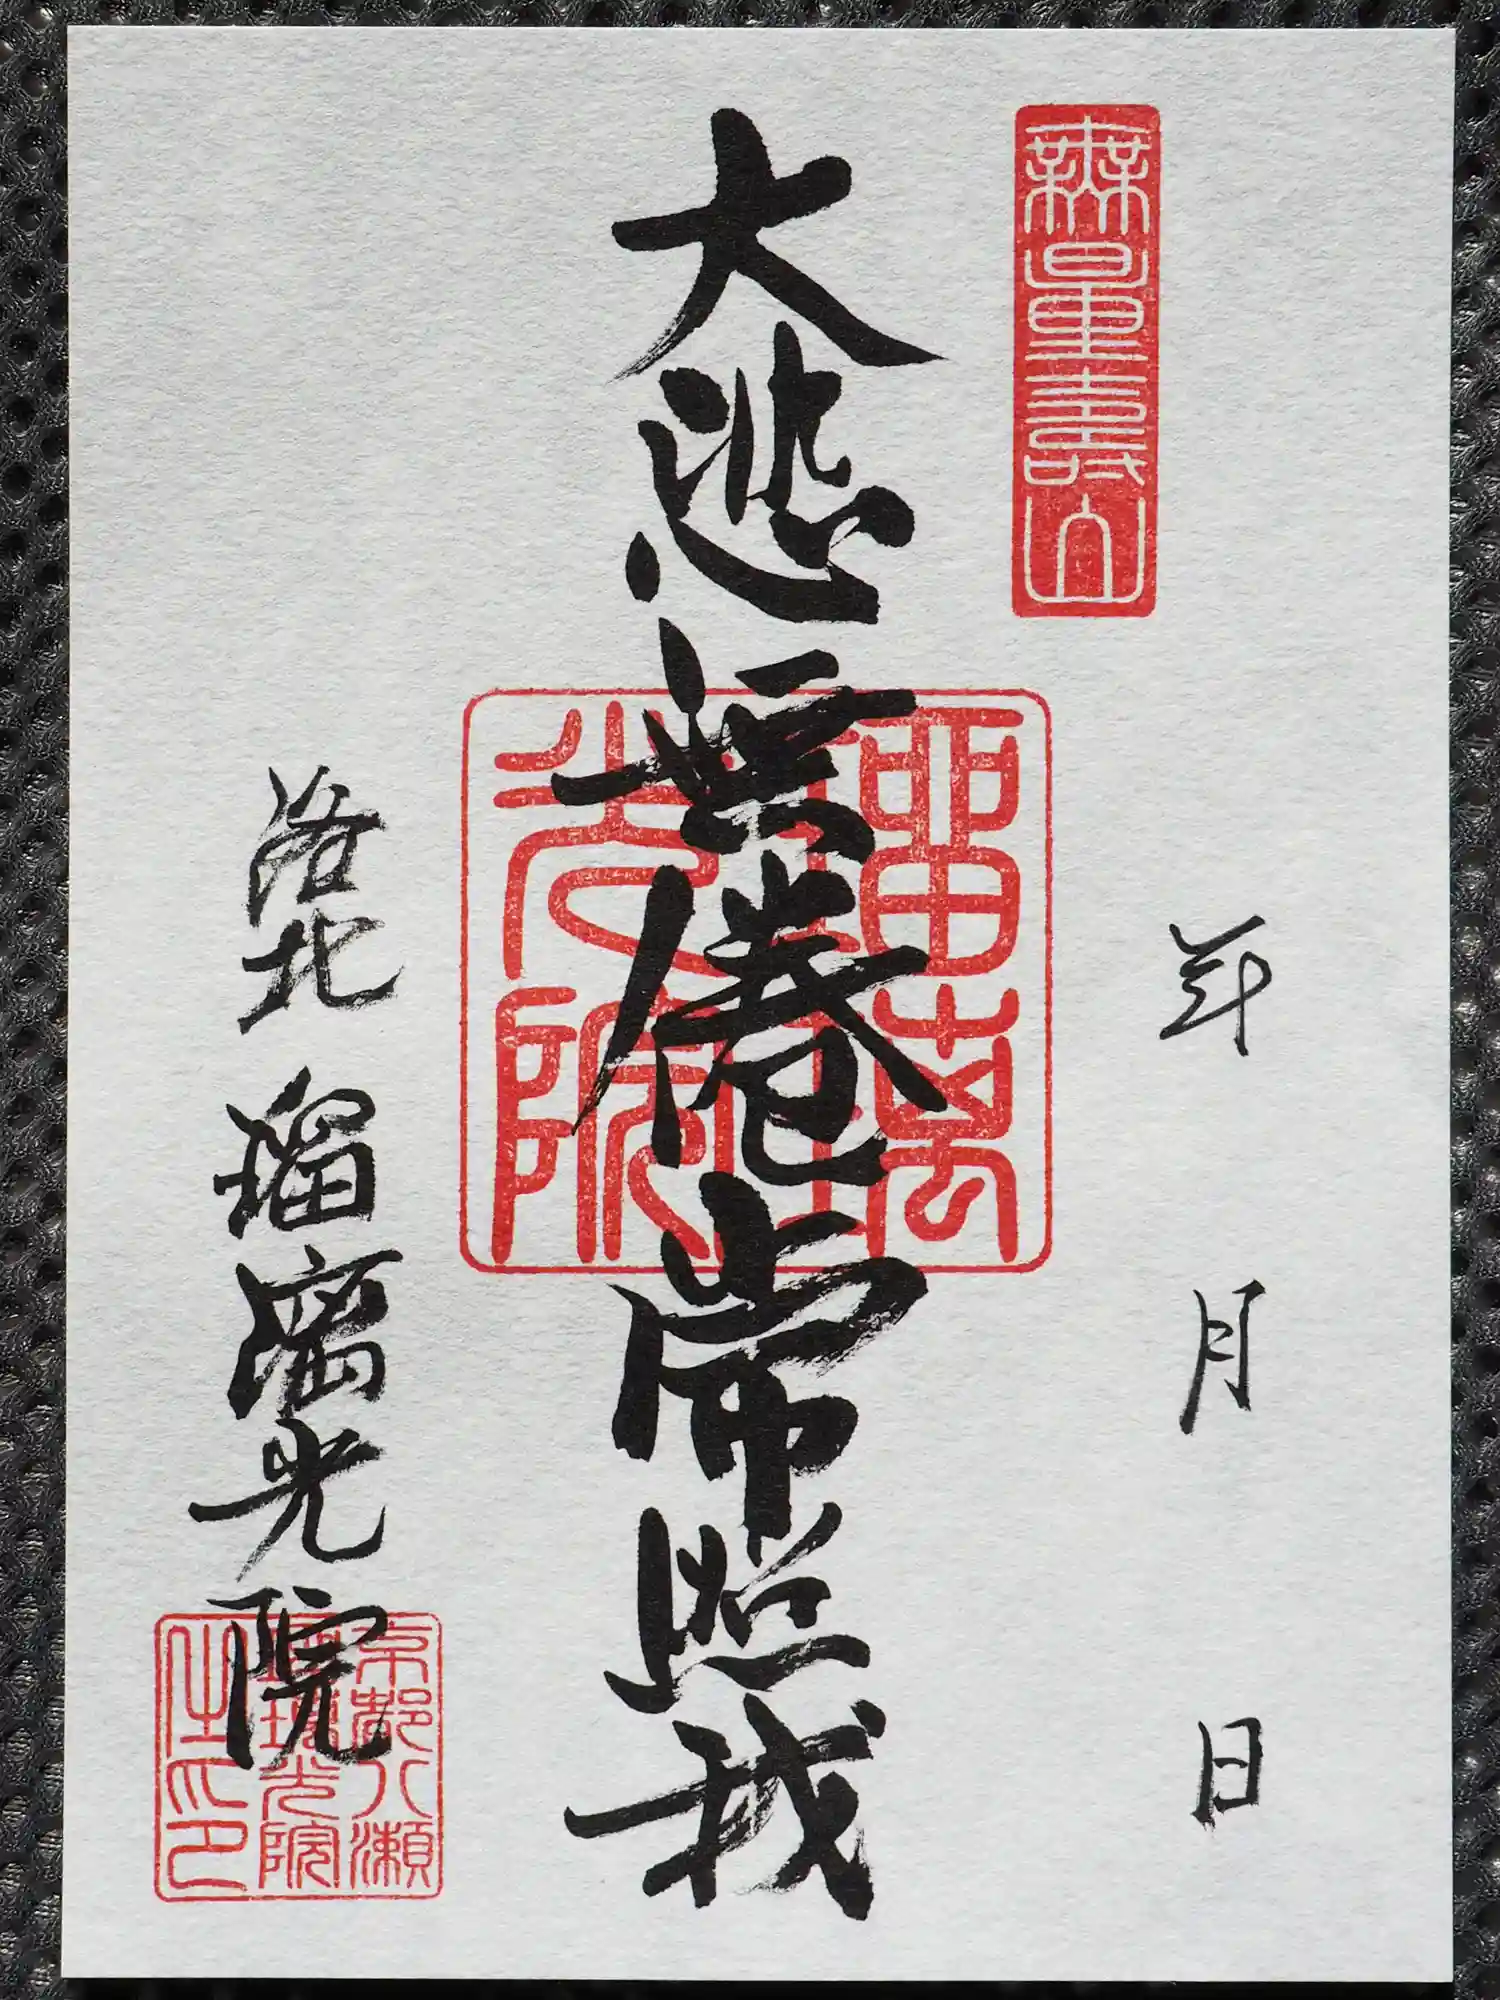 無量壽山
年 月 日
大悲無倦常照我
瑠璃光院
洛北 瑠璃光院
京都八瀬
瑠璃光院
之印